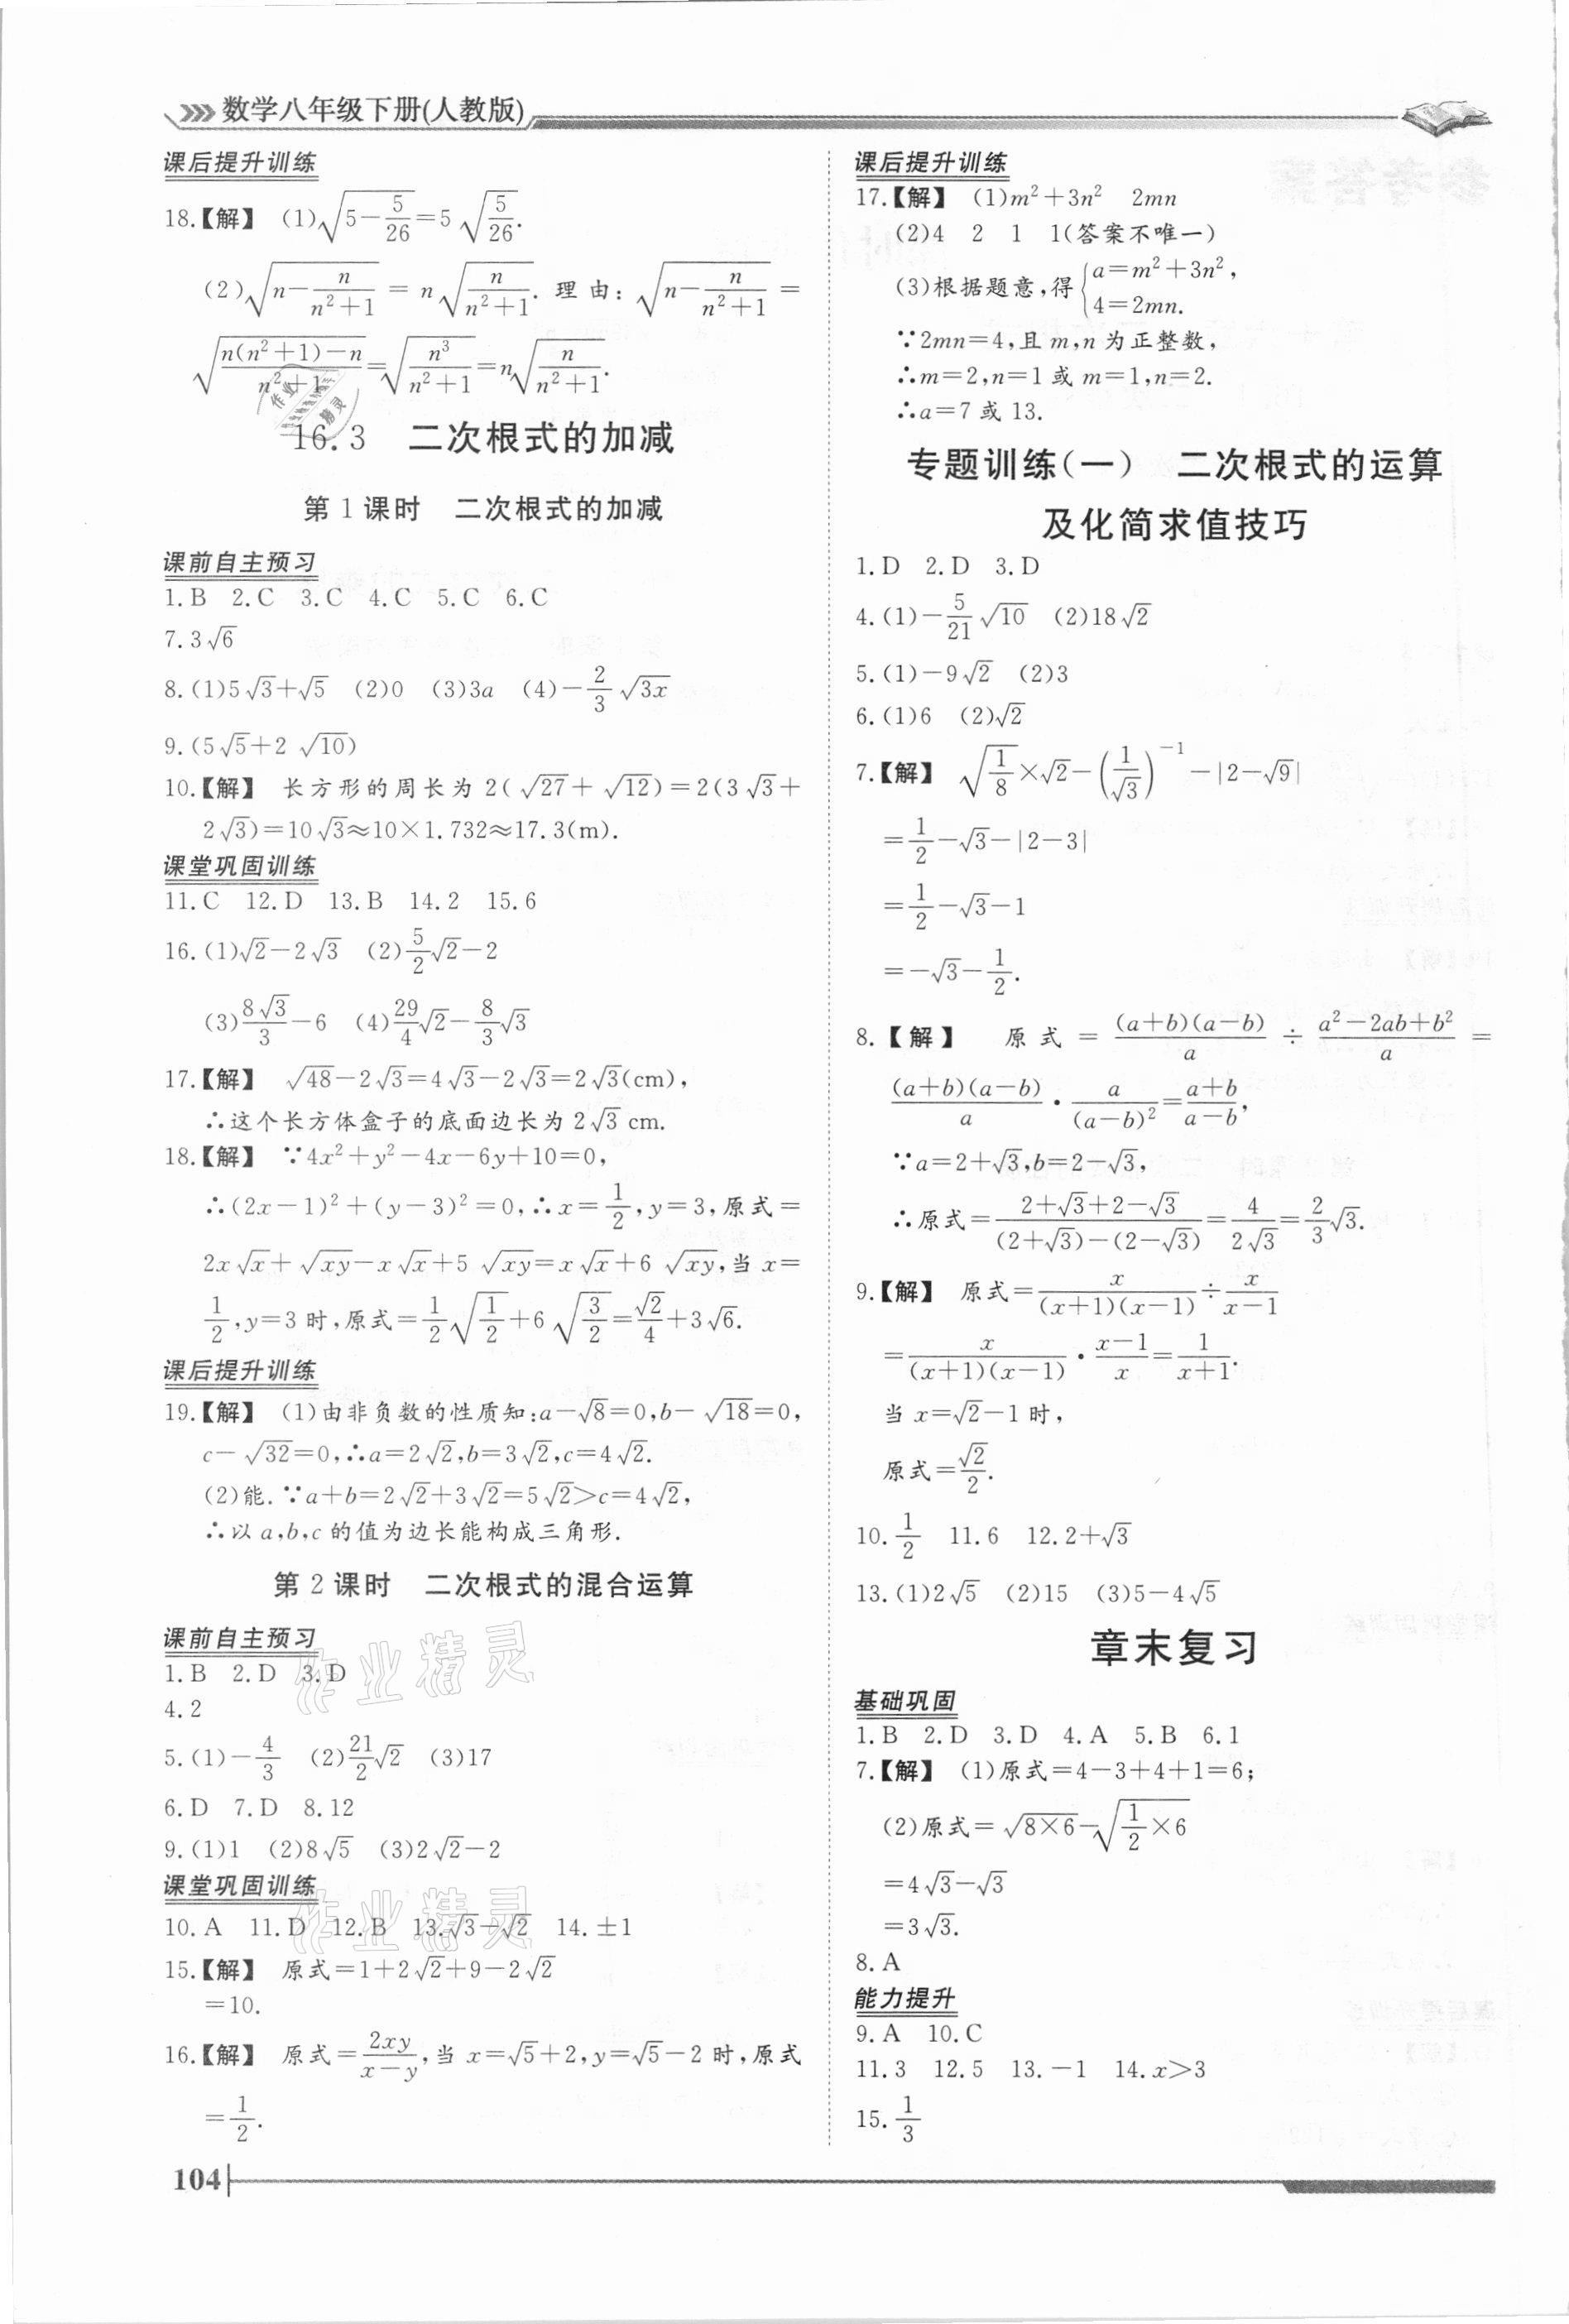 数学八年级下册(人教版)
课后提升训练
18.【解】 (1)√(5-5/26)=5√(5/26).
(2)√(n-n/(n²+1))=n√(n/(n²+1)). 理由:√(n-n/(n²+1))=
√((n(n²+1)-n)/(n²+1))=√(n³/(n²+1))=n√(n/(n²+1)).
16.3 二次根式的加减
第1课时 二次根式的加减
课前自主预习
1.B 2.C 3.C 4.C 5.C 6.C
7.3√6
8.(1)5√3+√5 (2)0 (3)3a (4)-2/3 √(3x)
9.(5√5+2√10)
10.【解】 长方形的周长为2(√27+√12)=2(3√3+
2√3)=10√3≈10×1.732≈17.3(m).
课堂巩固训练
11.C 12.D 13.B 14.2 15.6
16.(1)√2-2√3 (2)5/2 √2-2
(3)8√3/3-6 (4)29/4 √2-8/3 √3
17.【解】 √48-2√3=4√3-2√3=2√3(cm),
∴这个长方体盒子的底面边长为2√3 cm.
18.【解】 ∵4x²+y²-4x-6y+10=0,
∴(2x-1)²+(y-3)²=0,∴x=1/2,y=3,原式=
2x√x+√(xy)-x√x+5√(xy)=x√x+6√(xy),当x=
1/2,y=3时,原式=1/2 √(1/2)+6√(3/2)=√2/4+3√6.
课后提升训练
19.【解】 (1)由非负数的性质知:a-√8=0,b-√18=0,
c-√32=0,∴a=2√2,b=3√2,c=4√2.
(2)能.∵a+b=2√2+3√2=5√2>c=4√2,
∴以a,b,c的值为边长能构成三角形.
第2课时 二次根式的混合运算
课前自主预习
1.B 2.D 3.D
4.2
5.(1)-4/3 (2)21/2 √2 (3)17
6.D 7.D 8.12
9.(1)1 (2)8√5 (3)2√2-2
课堂巩固训练
10.A 11.D 12.B 13.√3-√2 14.±1
15.【解】 原式=1+2√2+9-2√2
=10.
16.【解】 原式=2xy/(x-y),当x=√5+2,y=√5-2时,原式
=1/2.
104
课后提升训练
17.【解】 (1)m²+3n² 2mn
(2)4 2 1 1(答案不唯一)
(3)根据题意,得{a=m²+3n²,
4=2mn.
∵2mn=4,且m,n为正整数,
∴m=2,n=1或m=1,n=2.
∴a=7或13.
专题训练(一) 二次根式的运算
及化简求值技巧
1.D 2.D 3.D
4.(1)-5/21 √10 (2)18√2
5.(1)-9√2 (2)3
6.(1)6 (2)√2
7.【解】 √(1/8)×√2-(1/√3)⁻¹-|2-√9|
=1/2-√3-|2-3|
=1/2-√3-1
=-√3-1/2.
8.【解】 原式=(a+b)(a-b)/a÷(a²-2ab+b²)/a=
(a+b)(a-b)/a·a/(a-b)²=(a+b)/(a-b),
∵a=2+√3,b=2-√3,
∴原式=(2+√3+2-√3)/((2+√3)-(2-√3))=4/(2√3)=2/3 √3.
9.【解】 原式=x/((x+1)(x-1))÷x/(x-1)
=x/((x+1)(x-1))·(x-1)/x=1/(x+1).
当x=√2-1时,
原式=√2/2.
10.1/2 11.6 12.2+√3
13.(1)2√5 (2)15 (3)5-4√5
章末复习
基础巩固
1.B 2.D 3.D 4.A 5.B 6.1
7.【解】 (1)原式=4-3+4+1=6;
(2)原式=√(8×6)-√(1/2×6)
=4√3-√3
=3√3.
8.A
能力提升
9.A 10.C
11.3 12.5 13.-1 14.x>3
15.1/3
作业精灵
作业精灵
作业精灵